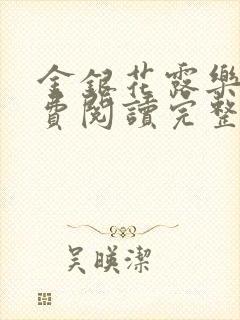 金銀花露樂
費閱讀完整
吴暎潔